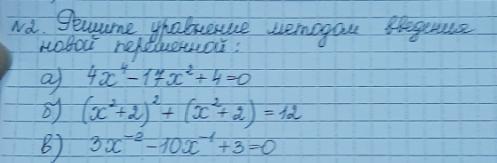 №2. Решите уравнение методом введения
новой переменной:
а) 4x⁴-17x²+4=0
б) (x²+2)²+(x²+2)=12
в) 3x⁻²-10x⁻¹+3=0